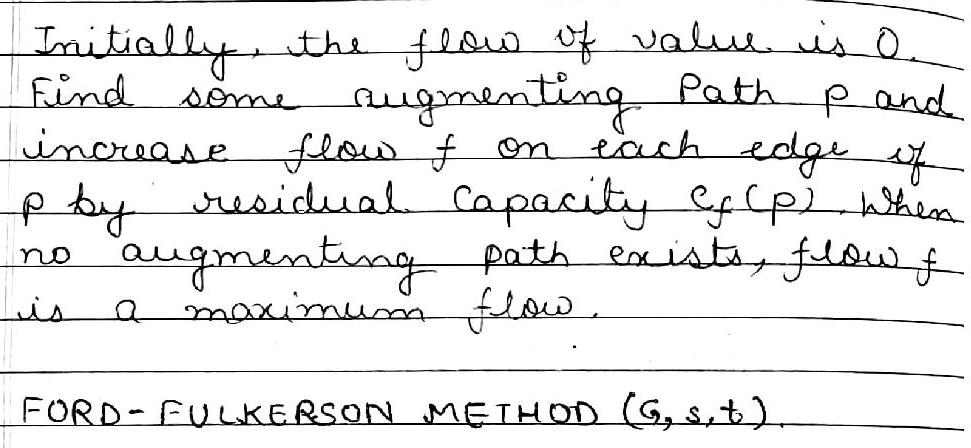 Initially, the flow of value is 0.
Find some augmenting Path p and
increase flow f on each edge of
p by residual Capacity Cf(p). When
no augmenting path exists, flow f
is a maximum flow.
FORD-FULKERSON METHOD (G, s, t)